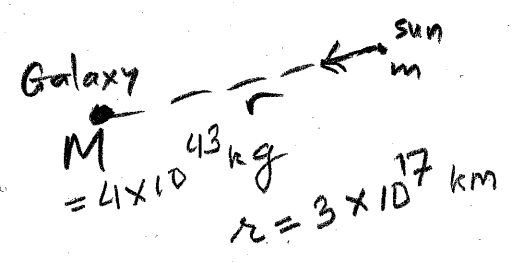 Galaxy
sun
m
r
M
= 4×10⁴³ kg
r = 3 × 10¹⁷ km